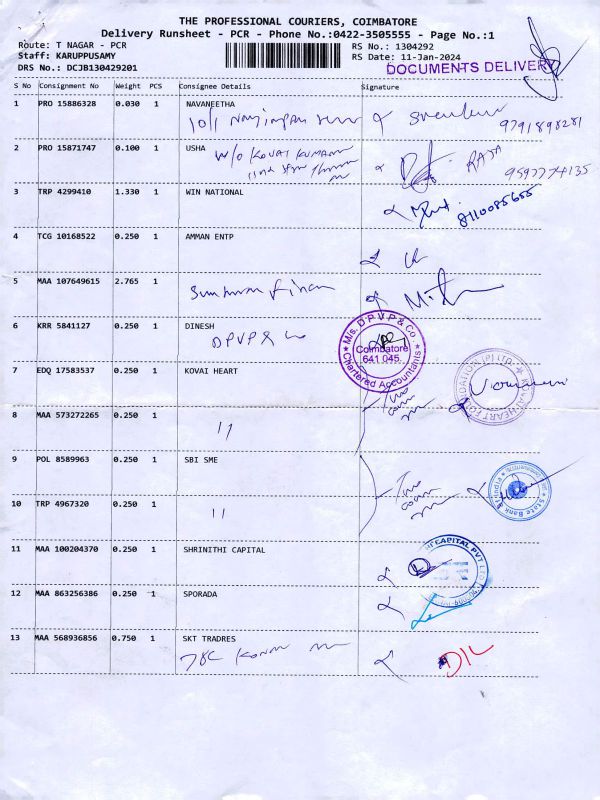 THE PROFESSIONAL COURIERS, COIMBATORE
Delivery Runsheet - PCR - Phone No.:0422-3505555 - Page No.:1
Route: T NAGAR - PCR
RS No.: 1304292
Staff: KARUPPUSAMY
RS Date: 11-Jan-2024
DRS No.: DCJB130429201
DOCUMENTS DELIVERY
S No Consignment No Weight PCS Consignee Details Signature
1 PRO 15886328 0.030 1 NAVANEETHA
9791898281
2 PRO 15871747 0.100 1 USHA
W/O KOVAI KUMARAN
RAJA
9597774135
3 TRP 4299410 1.330 1 WIN NATIONAL
8110085655
4 TCG 10168522 0.250 1 AMMAN ENTP
5 MAA 107649615 2.765 1
6 KRR 5841127 0.250 1 DINESH
DPVP & Co
M/s. DPVP & Co
Coimbatore
641 045.
Chartered Accountants
7 EDQ 17583537 0.250 1 KOVAI HEART
KOVAI HEART FOUNDATION (P) LTD.
8 MAA 573272265 0.250 1
11
9 POL 8589963 0.250 1 SBI SME
State Bank
10 TRP 4967320 0.250 1
11
11 MAA 100204370 0.250 1 SHRINITHI CAPITAL
CAPITAL PVT LTD
12 MAA 863256386 0.250 1 SPORADA
13 MAA 568936856 0.750 1 SKT TRADRES
DIL